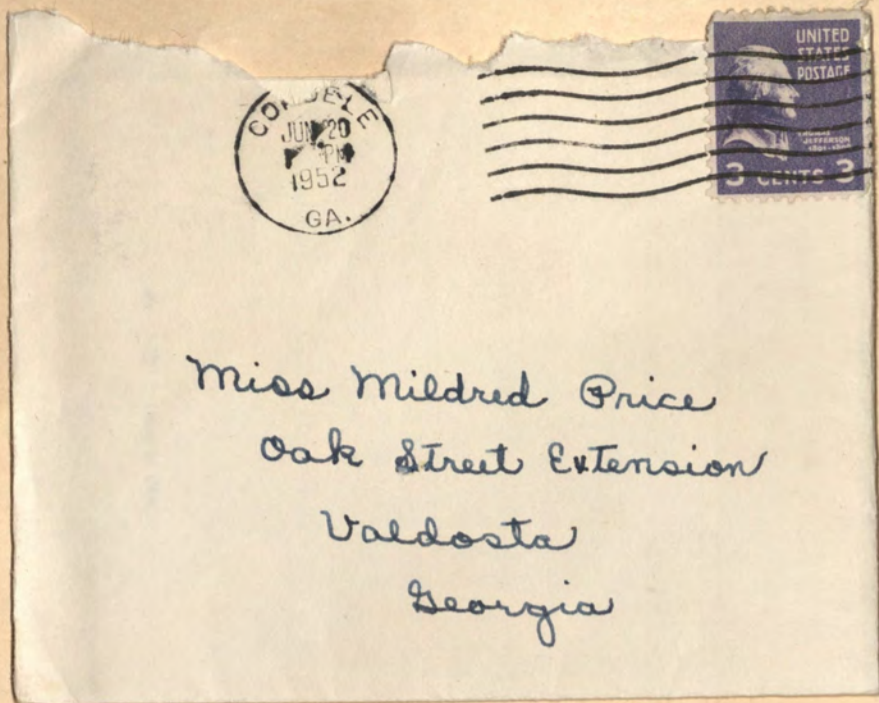 CORDELE
JUN 20
PM
1952
GA.
UNITED
STATES
POSTAGE
THOMAS
JEFFERSON
3 CENTS 3
Miss Mildred Price
Oak Street Extension
Valdosta
Georgia